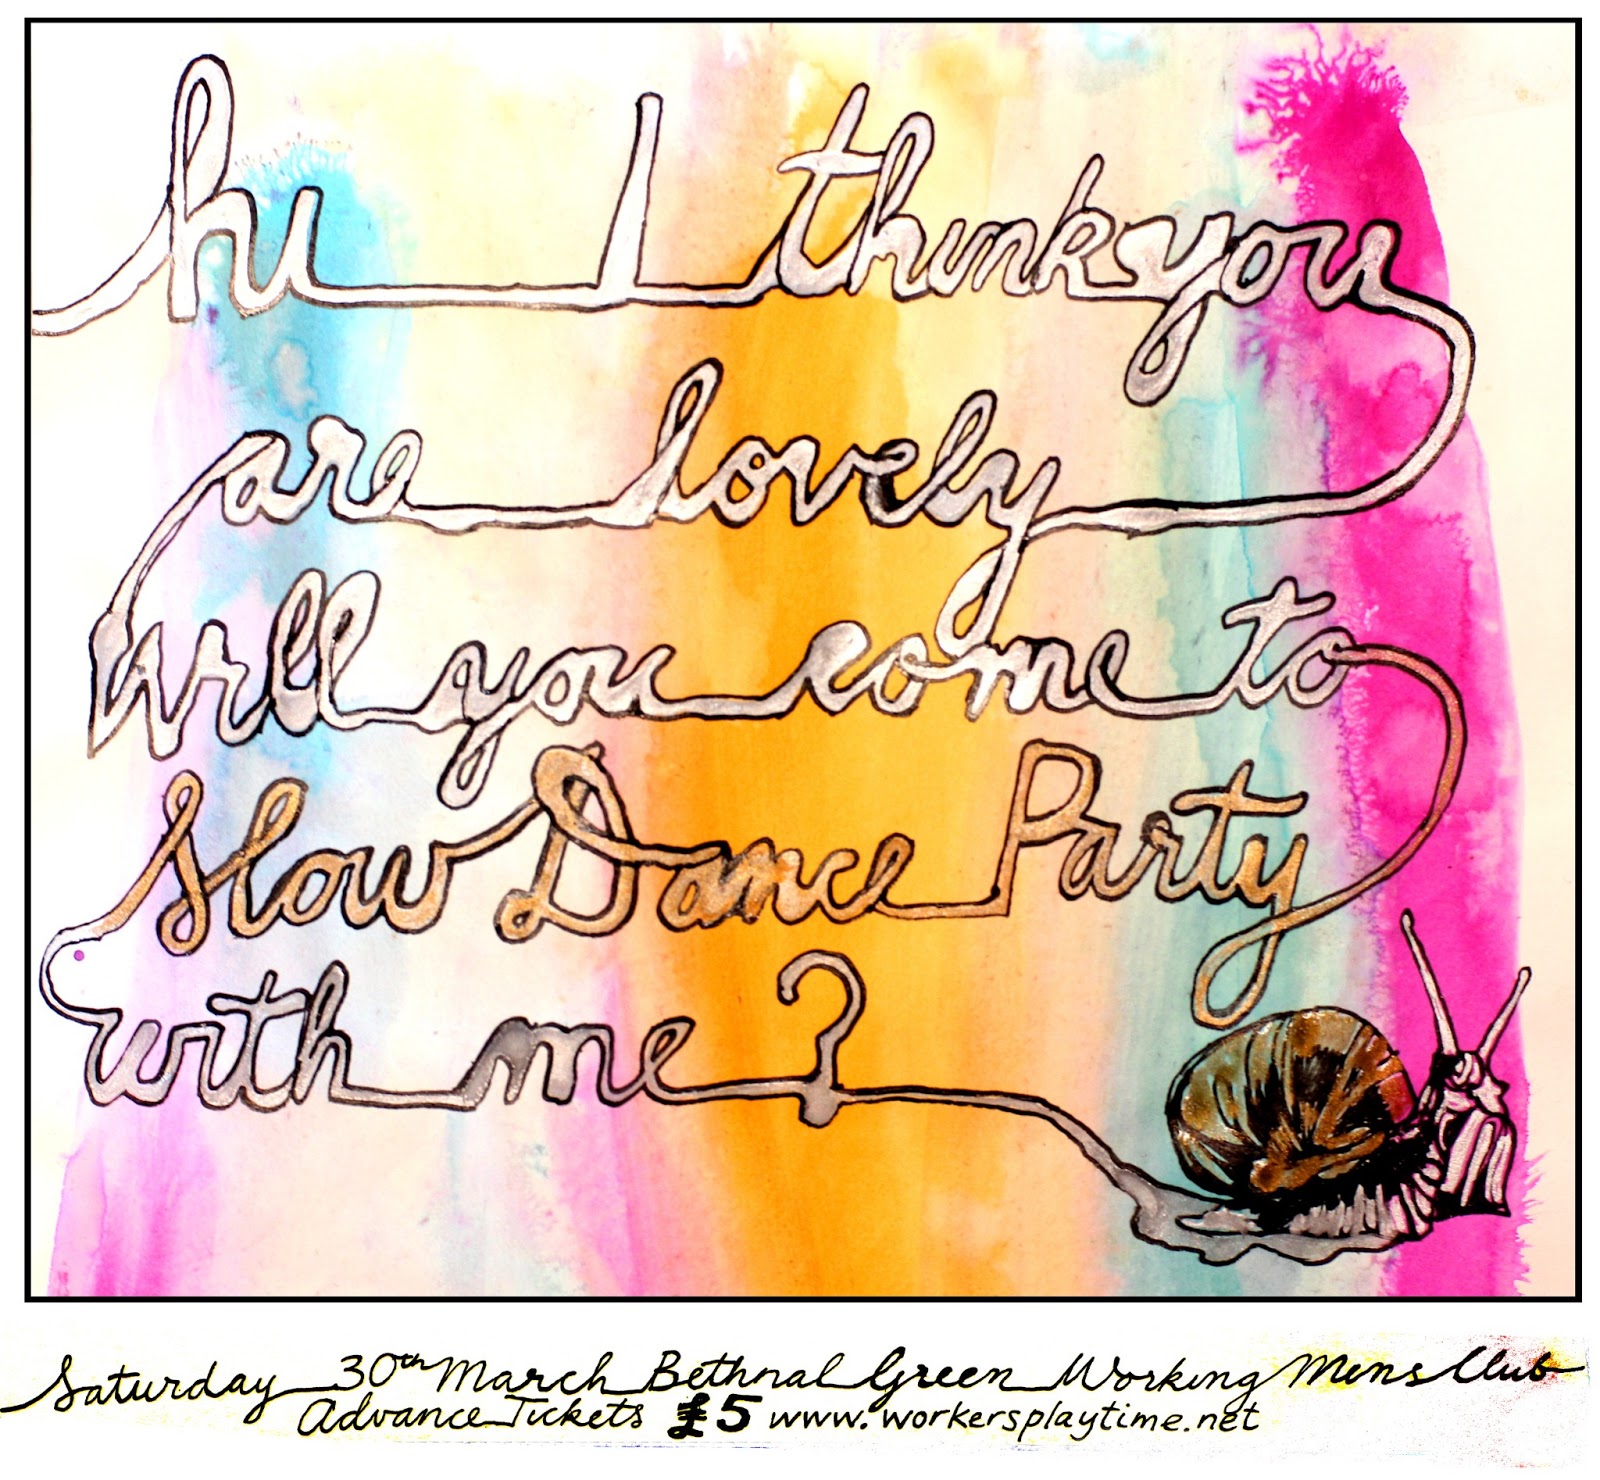 hi I think you
are lovely
will you come to
Slow Dance Party
with me?
Saturday 30th March Bethnal Green Working Mens Club
Advance Tickets £5 www.workersplaytime.net